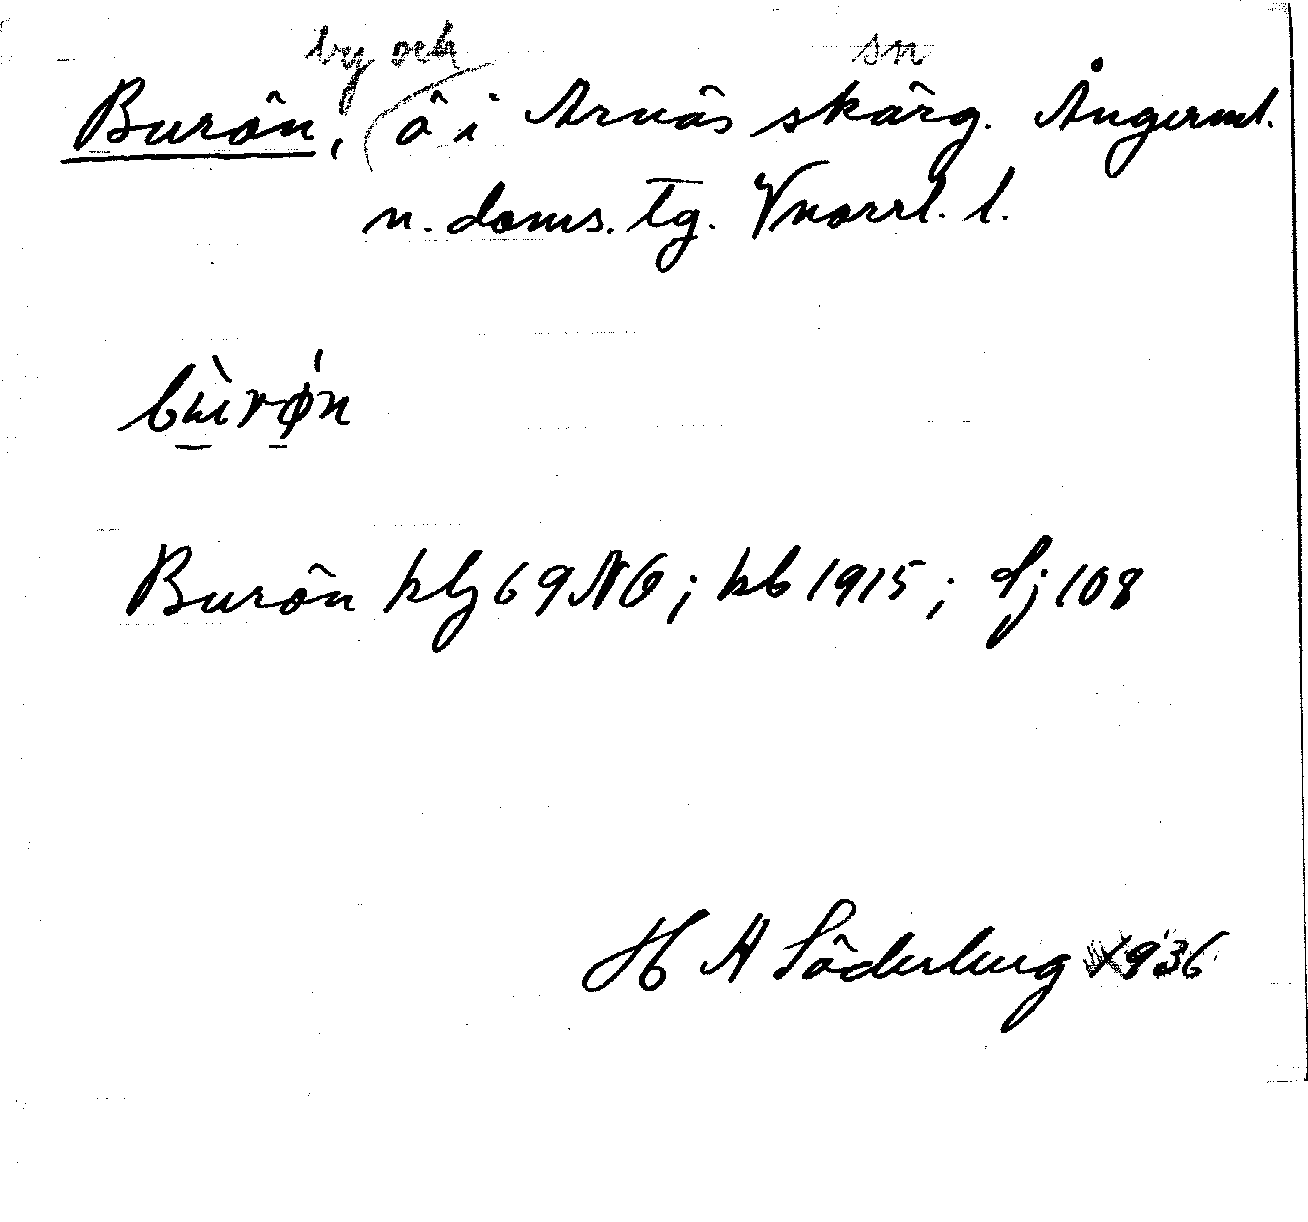 by och sn
Burön, ö i Arnäs skärg. Ångerml.
n. doms. tg. Vnorrl. l.
bùrǿn
Burön kbl 69 NO; kb 1915; dj 108
H A Söderberg 1936